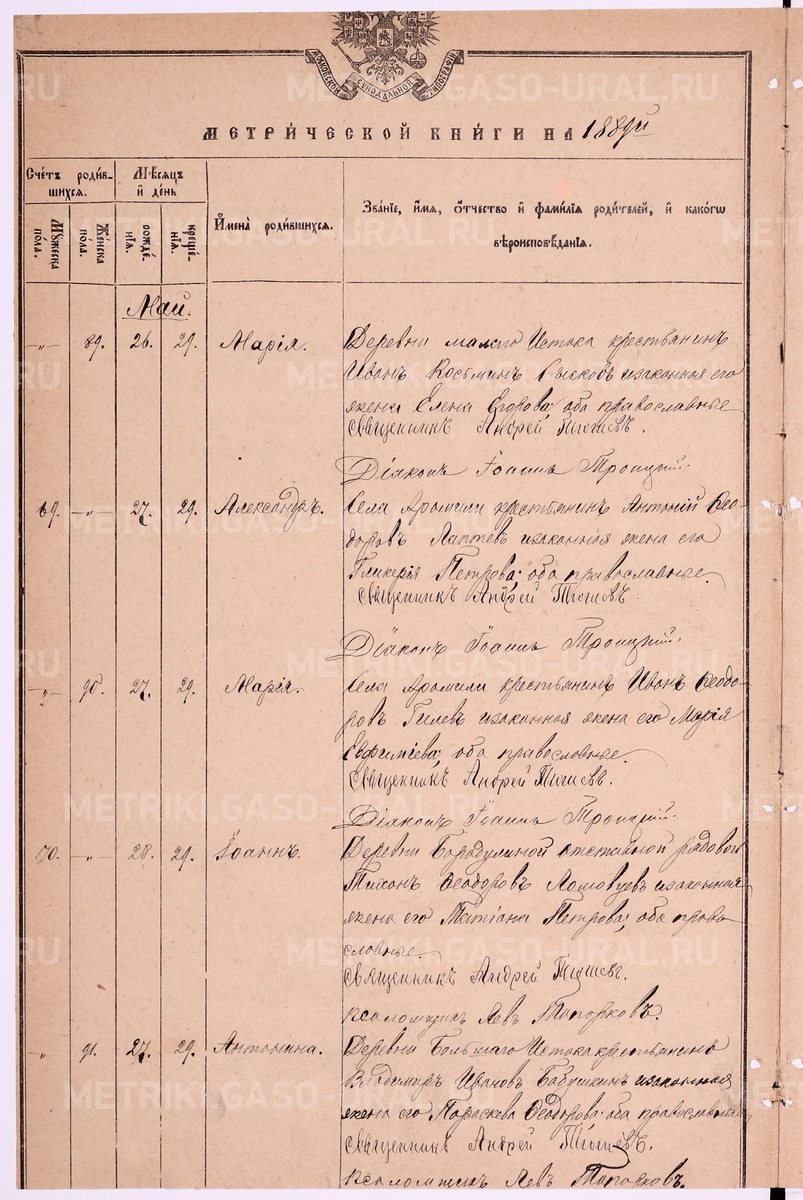 МОСКОВСКОЙ СУНОДАЛЬНОЙ ТИПОГРАФІИ
МЕТРИ́ЧЕСКОЙ КНИ́ГИ НА 1889й
Сче́тъ роди́в-
шихся.
Мѣ́сяцъ
и де́нь
Мꙋ́жеска
по́ла.
Же́нска
по́ла.
рожде́-
нія.
креще́-
нія.
И҆мена̀ роди́вшихся.
Зва́ніе, и҆́мя, ѻ҆́тчество и҆ фами́лія роди́телей, и҆ како́гѡ
вѣроисповѣ́данія.
Май.
-"- 89. 26. 29. Марія. Деревни малаго Истока крестьянинъ
Иванъ Косьминъ изаконная его
жена Елена Егорова; оба православные
Священникъ Андрей
Діаконъ Іоаннъ Троицкій.
69. -"- 27. 29. Александръ. Села Арамили крестьянинъ Антоній Ѳео-
доровъ Лаптевъ изаконная жена его
Гликерія Петрова; оба православные.
Священникъ Андрей
Діаконъ Іоаннъ Троицкій.
-"- 90. 27. 29. Марія. Села Арамили крестьянинъ Иванъ Ѳеодо-
ровъ Гилевъ изаконная жена его Марія
Евфиміева; оба православные.
Священникъ Андрей
Діаконъ Іоаннъ Троицкій.
70. -"- 28. 29. Іоаннъ. Деревни Бородулиной отставной рядовой
Тихонъ Ѳеодоровъ изаконная
жена его Татіана Петрова; оба право-
славные.
Священникъ Андрей
псаломщикъ Левъ Топорковъ.
-"- 91. 27. 29. Антонина. Деревни Большаго Истока крестьянинъ
Владимиръ Ивановъ Бабушкинъ изаконная
жена его Параскева Ѳеодорова; оба православные
Священникъ Андрей
псаломщикъ Левъ Топорковъ.
METRIKI.GASO-URAL.RU